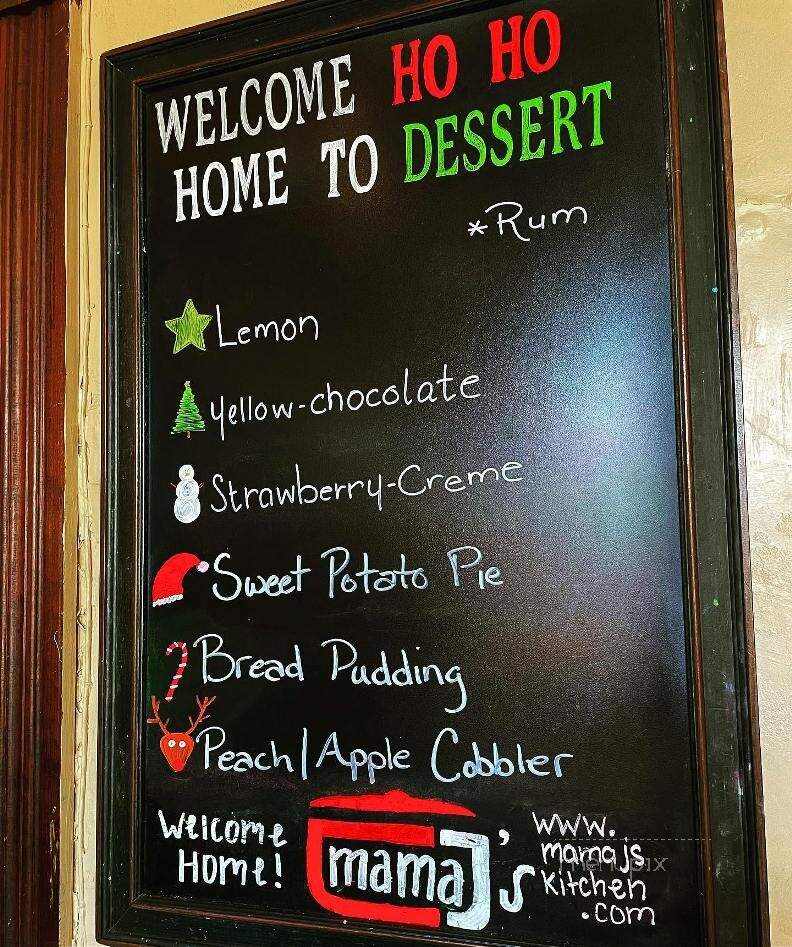 WELCOME HO HO
HOME TO DESSERT
*Rum
Lemon
Yellow-chocolate
Strawberry-Creme
Sweet Potato Pie
Bread Pudding
Peach/Apple Cobbler
Welcome
Home!
mama J's
www.
mamajs
kitchen
.com
menupix